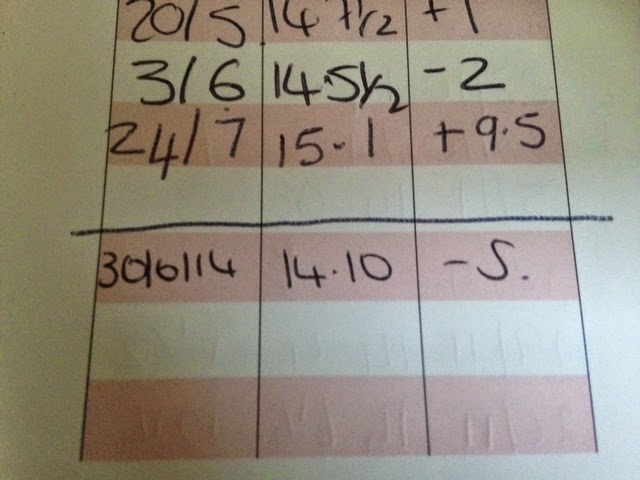 20/5 14 7 1/2 +1
3/6 14.5 1/2 -2
24/7 15-1 +9.5
30/6/14 14.10 -5.